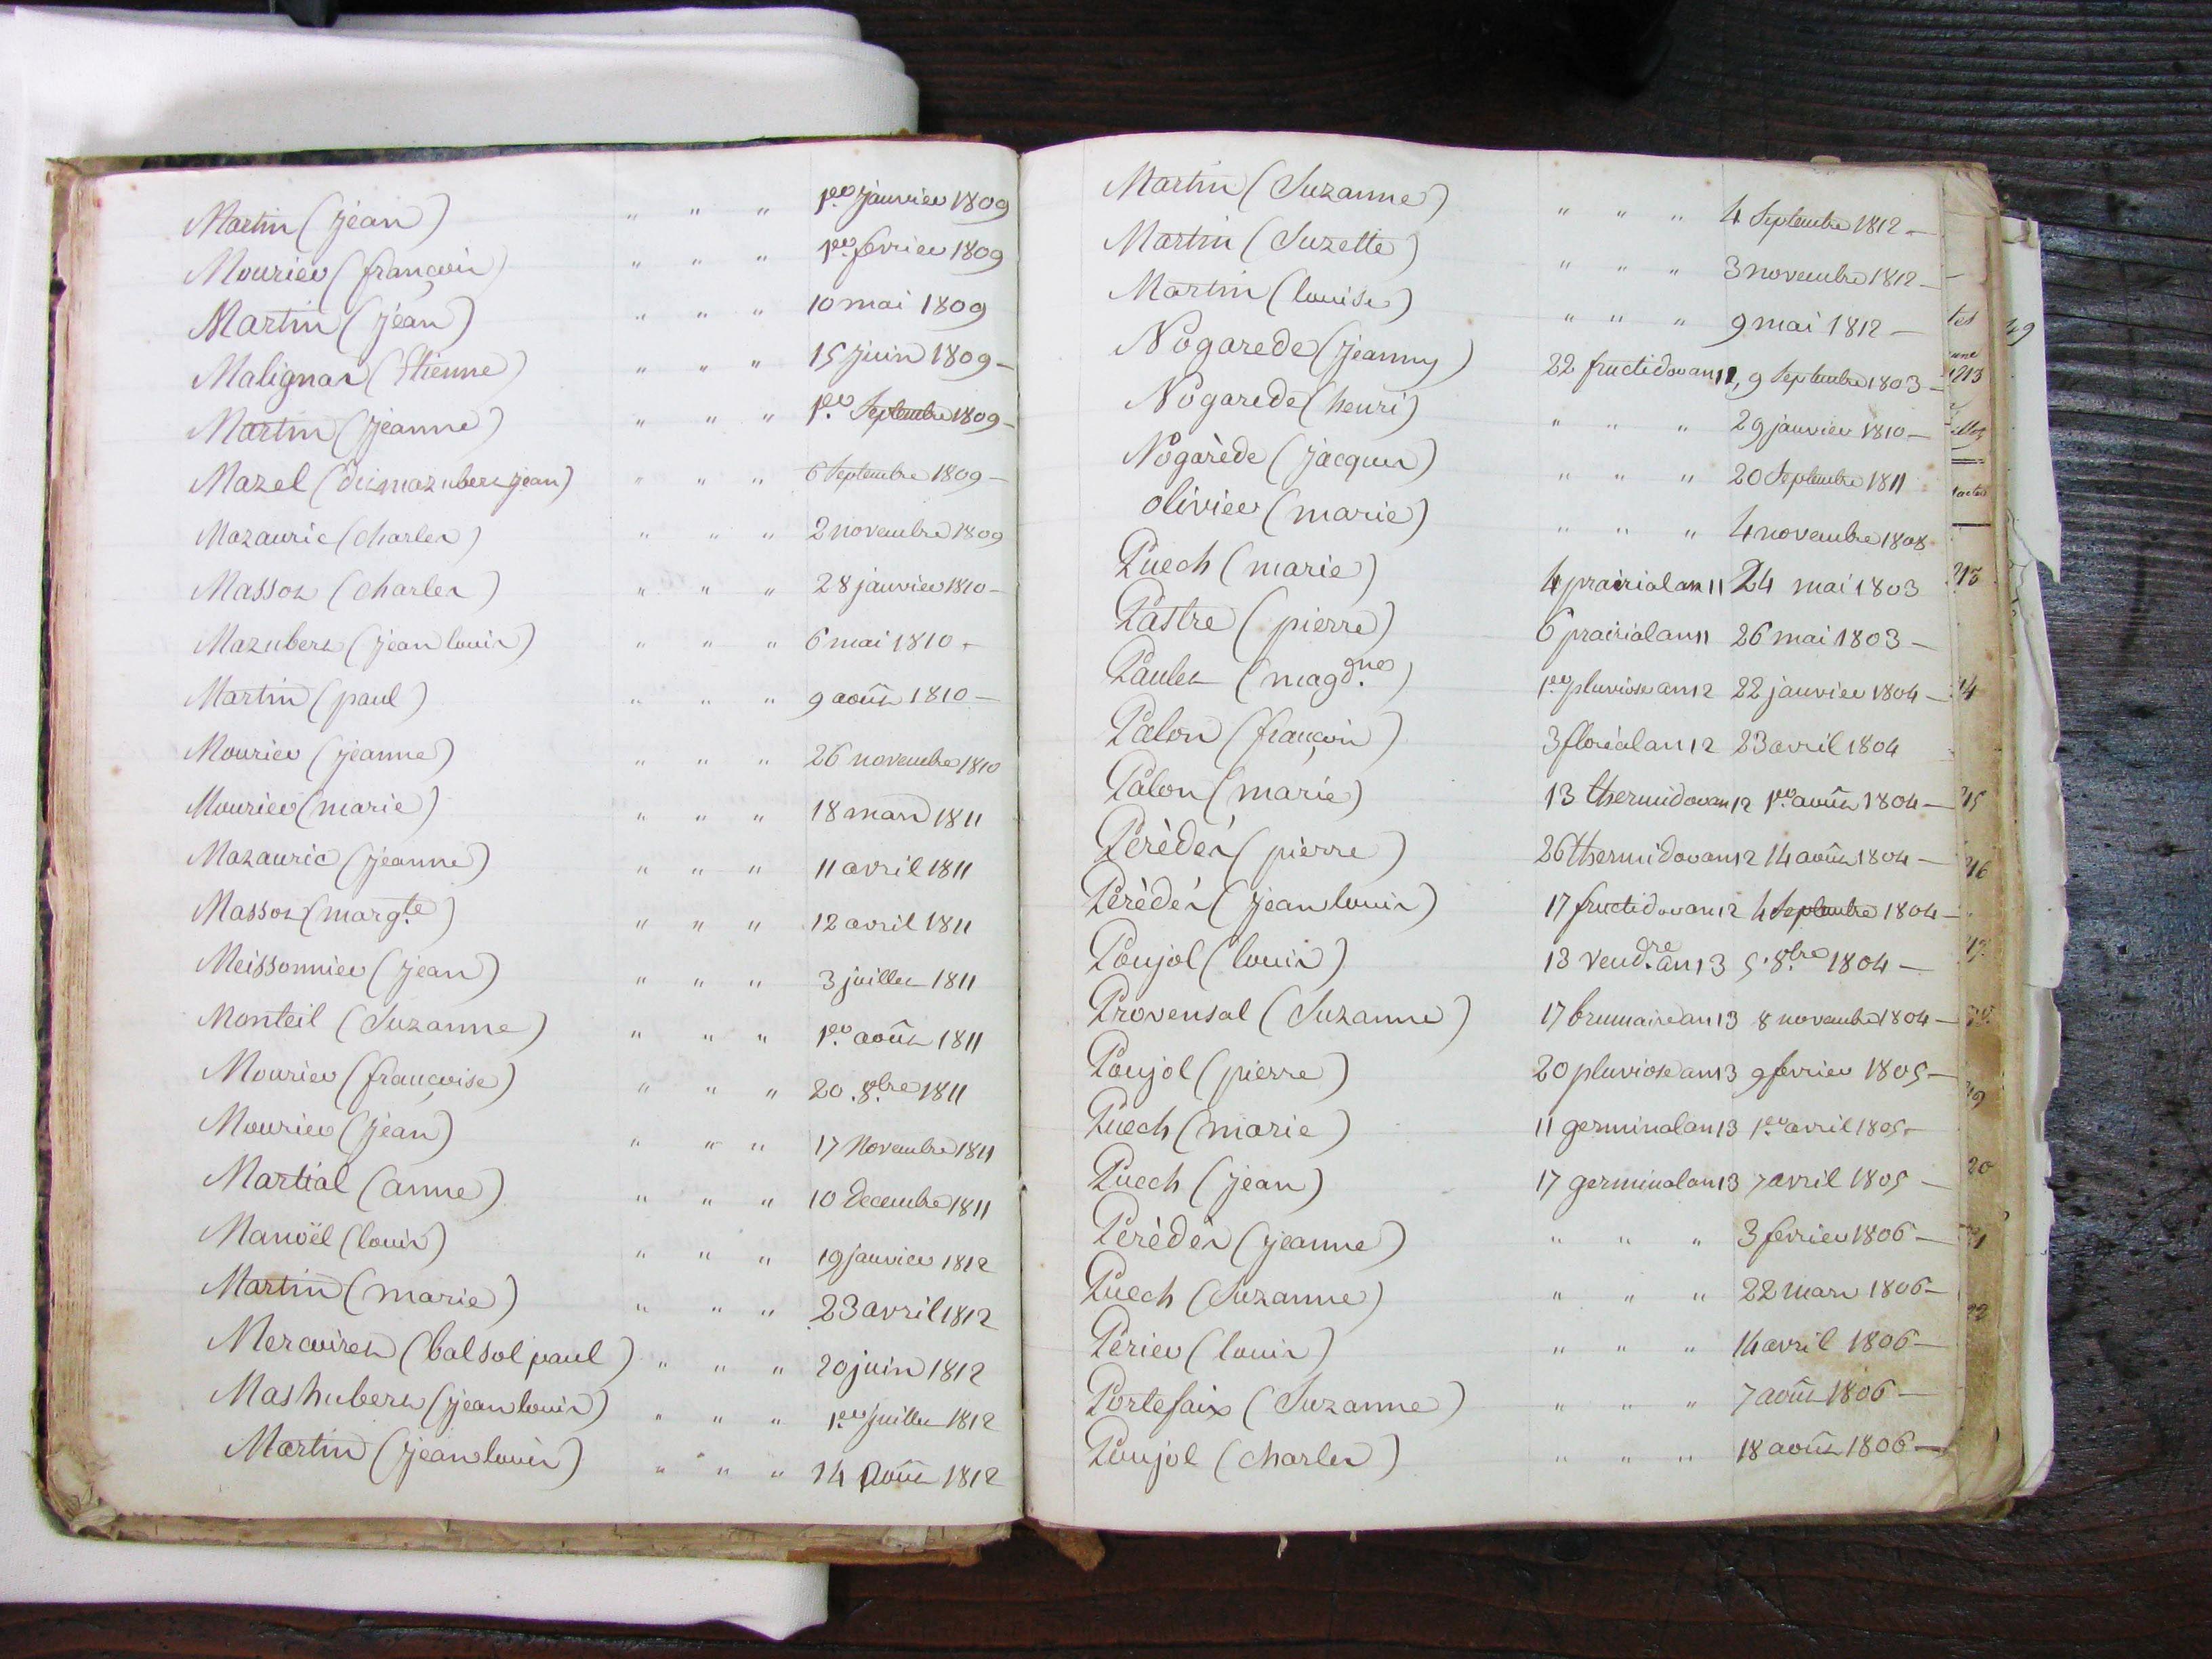 Martin (jean) " " " 1.er janvier 1809
Mourier (françois) " " " 1.er fevrier 1809
Martin (jean) " " " 10 mai 1809
Malignas (Etienne) " " " 15 juin 1809 -
Martin (jeanne) " " " 1.er Septembre 1809 -
Mazel (dit mazubert jean) " " " 6 Septembre 1809 -
Mazauric (charles) " " " 2 novembre 1809
Massot (charles) " " " 28 janvier 1810 -
Mazubert (jean louis) " " " 6 mai 1810 -
Martin (paul) " " " 9 août 1810 -
Mourier (jeanne) " " " 26 novembre 1810
Mourier (marie) " " " 18 mars 1811
Mazauric (jeanne) " " " 11 avril 1811
Massot (marg.te) " " " 12 avril 1811
Meissonnier (jean) " " " 3 juillet 1811
Monteil (Suzanne) " " " 1.er août 1811
Mourier (françoise) " " " 20 . 8.bre 1811
Mourier (jean) " " " 17 Novembre 1811
Martial (anne) " " " 10 decembre 1811
Manoël (louis) " " " 19 janvier 1812
Martin (marie) " " " 23 avril 1812
Mercoiret (balsol paul) " " " 20 juin 1812
Mashubert (jean louis) " " " 1.er juillet 1812
Martin (jean louis) " " " 14 Août 1812
Martin (Suzanne) " " " 4 Septembre 1812 -
Martin (Suzette) " " " 3 novembre 1812 -
Martin (louise) " " " 9 mai 1812 -
Nogarede (jeanny) 22 fructidor an 11, 9 Septembre 1803 -
Nogarede (henri) " " " 29 janvier 1810 -
Nogarède (jacques) " " " 20 Septembre 1811
olivier (marie) " " " 4 novembre 1808
Puech (marie) 4 prairial an 11 24 mai 1803
Pastre (pierre) 6 prairial an 11 26 mai 1803 -
Paulet (magd.ne) 1.er pluviose an 12 22 janvier 1804 -
Palon (françois) 3 floréal an 12 23 avril 1804
Palon (marie) 13 thermidor an 12 1.er août 1804 -
Perèdés (pierre) 26 thermidor an 12 14 août 1804 -
Perèdés (jean louis) 17 fructidor an 12 4 Septembre 1804 -
Poujol (louis) 13 vend.re an 13 5 . 8.bre 1804 -
Provensal (Suzanne) 17 brumaire an 13 8 novembre 1804 -
Poujol (pierre) 20 pluviose an 13 9 fevrier 1805 -
Puech (marie) 11 germinal an 13 1.er avril 1805 -
Puech (jean) 17 germinal an 13 7 avril 1805 -
Perèdès (jeanne) " " " 3 fevrier 1806 -
Puech (Suzanne) " " " 22 mars 1806 -
Périer (louis) " " " 14 avril 1806 -
Portefaix (Suzanne) " " " 7 août 1806 -
Poujol (charles) " " " 18 août 1806 -